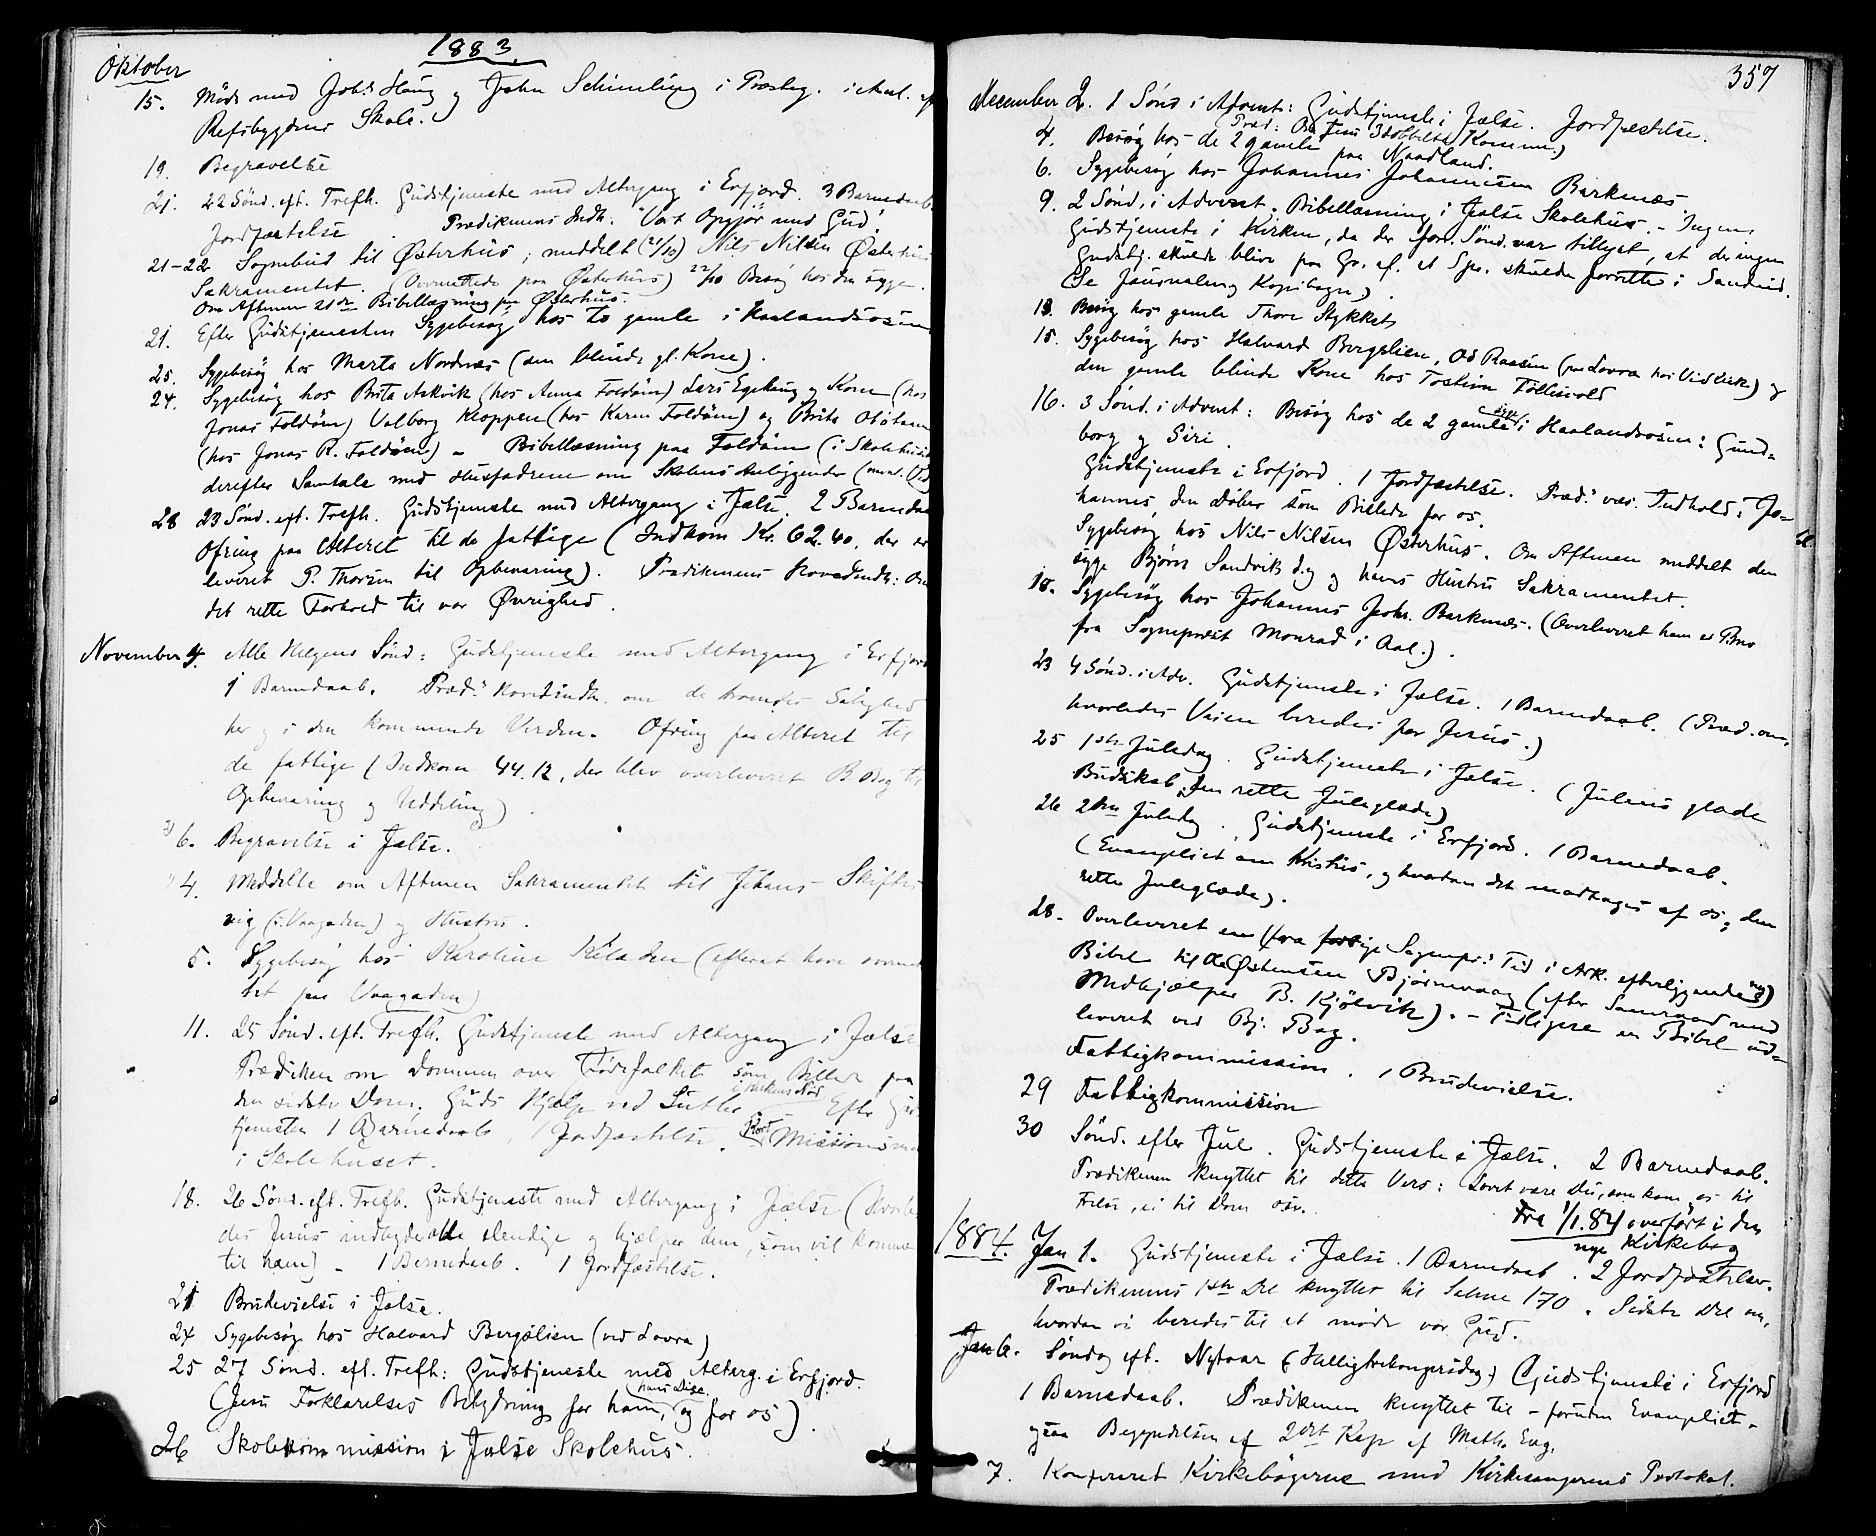 1883.
Oktober
15. Möde med Johs Haug og John Schimling i Præsteg. i Anl. af
Refsbygdens Skole.
19. Begravelse
21. 22 Sönd. eft. Trefh. Gudstjeneste med Altergang i Erfjord. 3 Barnedaab.
Jordfæstelse. Prædikenens Indh. "Vort Opgjör med Gud".
21-22 Sognebud til Østerhus; meddelt (21/10) Nils Nilsen Østerhus
Sakramentet. (Overnattede paa Østerhus) 22/10 Besög hos den syge.
Om Aftenen 21de Bibellæsning paa Østerhus.
21. Efter Gudstjenesten Sygebesög hos to gamle i Haalandsosen
25. Sygebesög hos Marta Nordnæs (den blinde gl. Kone).
24. Sygebesög hos Brita Askvik (hos Anna Foldöen) Lars Egeland og Kone (hos
Jonas Foldöen) Valborg Kloppen (hos Karen Foldöen) og Brita
(hos Jonas R. Foldöen) - Bibellæsning paa Foldöen (i Skolehuset
derefter Samtale med Husfædrene om Skolens Anliggender
28 23 Sönd. eft. Trefh. Gudstjeneste med Altergang i Jælse. 2 Barnedaab
Ofring paa Alteret til de fattige (Indkom Kr. 62.40, der er
leveret P. Thorsen til Opbevaring). Prædikenens Hovedindh: Om
det rette Forhold til vor Øvrighed.
November 4. Alle Helgens Sönd: Gudstjeneste med Altergang i Erfjord
1 Barnedaab. Præd.s Hovedindh. om de troendes Salighed
her og i den kommende Verden. Ofring paa Alteret til
de fattige (Indkom 44.12, der blev overleveret B Bog til
Opbevaring og Uddeling).
2) 6. Begravelse i Jælse.
1) 4. Meddelte om Aftenen Sakramentet til Johans Skifter
vig (i Vaagaden) og Hustru.
5. Sygebesög hos Karoline Kiladen (efterat have overnat
tet paa Vaagaden)
11. 25 Sönd. eft. Trefh. Gudstjeneste med Altergang i Jælse
Prædiken om Dommen over Jödefolket som Billede paa
den sidste Dom. Guds Hjælp ved Luther i Kirkens Nöd. Efter Gud
tjenesten 1 Barnedaab, 1 Jordfæstelse. Kort Missionsm
i Skolehuset.
18. 26 Sönd. eft. Trefh. Gudstjeneste med Altergang i Jælse (Hvorle-
des Jesus indbyder alle elendige og hjælper dem, som vil komme
til ham) - 1 Barnedaab. 1 Jordfæstelse.
21 Brudevielse i Jælse.
24 Sygebesög hos Halvard Bergelien (ved Lovra)
25 27 Sönd. eft. Trefh: Gudstjeneste med Alterg. i Erfjord.
(Jesu Forklarelses Betydning for ham, hans Disc. og for os).
26 Skolekommission i Jælse Skolehus.
357
December 2. 1 Sönd i Advent: Gudstjeneste i Jælse. Jordfæstelse.
(Præd: Om Jesu 3dobbelte Komme.)
4. Besög hos de 2 gamle paa Naadland.
6. Sygebesög hos Johannes Johannesen Barknæs.
9. 2 Sönd. i Advent. Bibellæsning i Jælse Skolehus. - Ingen
Gudstjeneste i Kirken, da der forr. Sönd. var tillyst, at der ingen
Gudstj. skulde blive paa Gr. af, at Spr. skulde forrette i Sandeid.
(Se Journalen og Kopibogen).
13. Besög hos gamle Thore Stykket
15. Sygebesög hos Halvard Bergelien, Od Raasen (paa Lovra hos Vidvik) og
den gamle blinde Kone hos Tostein Tøllisvold
16. 3 Sönd. i Advent: Besög hos de 2 gamle syge i Haalandsosen: Gund-
borg og Siri.
Gudstjeneste i Erfjord. 1 Jordfæstelse. Præd.s væs. Indhold: Jo-
hannes, den Döber som Billede for os.
Sygebesög hos Nils Nilsen Østerhus. Om Aftenen meddelt den
syge Bjørn Sandvik d.y og hans Hustru Sakramentet.
18. Sygebesög hos Johannes Johs. Barknæs. (Overleveret ham et Brev
fra Sognepræst Monrad i Aal.).
23 4 Sönd. i Adv. Gudstjeneste i Jælse. 1 Barnedaab. (Præd. om,
hvorledes Veien beredes for Jesus.)
25 1ste Juledag. Gudstjeneste i Jælse. (Julens glade
Budskab, den rette Juleglæde)
26 2den Juledag. Gudstjeneste i Erfjord. 1 Barnedaab.
(Evangeliet om Kristus, og hvordan det modtages af os, den
rette Juleglæde).
28. Overleveret en (fra forrige Sognepr.s Tid i Ark. efterliggende ny)
Bibel til Østensen Bjørnevaag (efter Samraad med
Medhjælper B. Kjölvik). - Tidligere en Bibel ud-
leveret ved Bj. Bog.
Fattigkommission. 1 Brudevielse.
29 Fattigkommission
30 Sönd. efter Jul. Gudstjeneste i Jælse. 2 Barnedaab.
Prædikenen knyttet til dette Vers: Lovet være Du, som kom os til
Frelse, ei til Dom osv.
Fra 1/1.84 overfört i den
nye Kirkebog
1884. Jan 1. Gudstjeneste i Jælse. 1 Barnedaab. 2 Jordfæstelser.
Prædikenens 1ste Del knyttet til Salme 170. Sidste Del om,
hvordan vi beredes til at möde vor Gud.
Jan 6. Söndag eft. Nytaar (Helligtrekongersdag.) Gudstjeneste i Erfjord
1 Barnedaab. Prædikenen knyttet til - foruden Evangeliet -
ogsaa Begyndelsen af 2det Kap af Math. Evg.
7. Konfereret Kirkebögerne med Kirkesangerens Protokol.